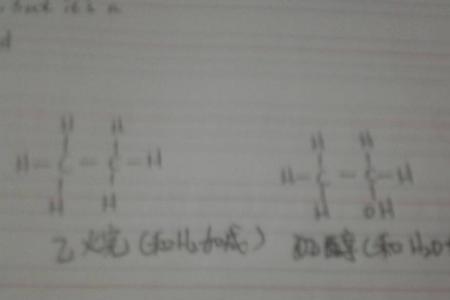 but it's a
d
H H
H-C-C-H
H H
乙烷(和H₂加成)
H H
H-C-C-H
H OH
乙醇(和H₂O